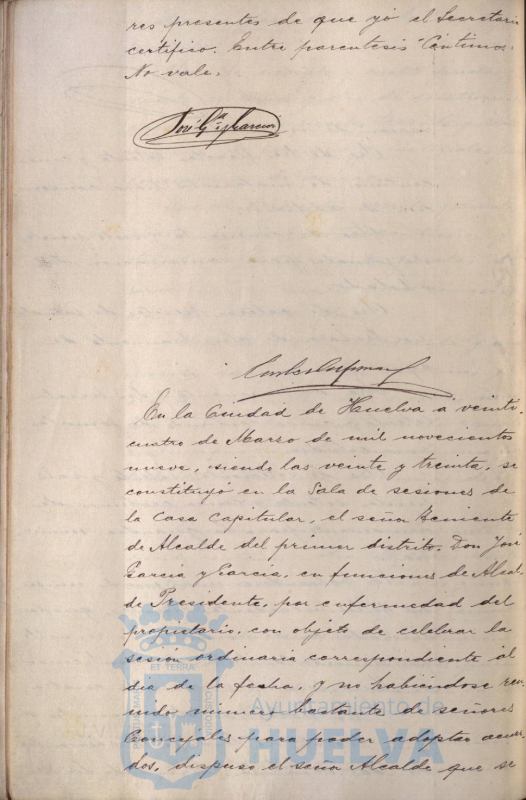 res presentes de que yó el Secretario
certifico. Entre parentesis Centimos.
No vale.
José Gª y García
En la Ciudad de Huelva a veinti-
cuatro de Marzo de mil novecientos
nueve, siendo las veinte y treinta, se
constituyó en la Sala de sesiones de
la Casa Capitular, el señor Teniente
de Alcalde del primer distrito, Don José
Garcia y Garcia, en funciones de Alcal-
de Presidente, por enfermedad del
propietario, con objeto de celebrar la
sesión ordinaria correspondiente al
dia de la fecha, y no habiéndose reu-
nido numero bastante de señores
Concejales para poder adoptar acuer-
dos, dispuso el señor Alcalde que se
ET TERRÆ
Ayuntamiento de
HUELVA